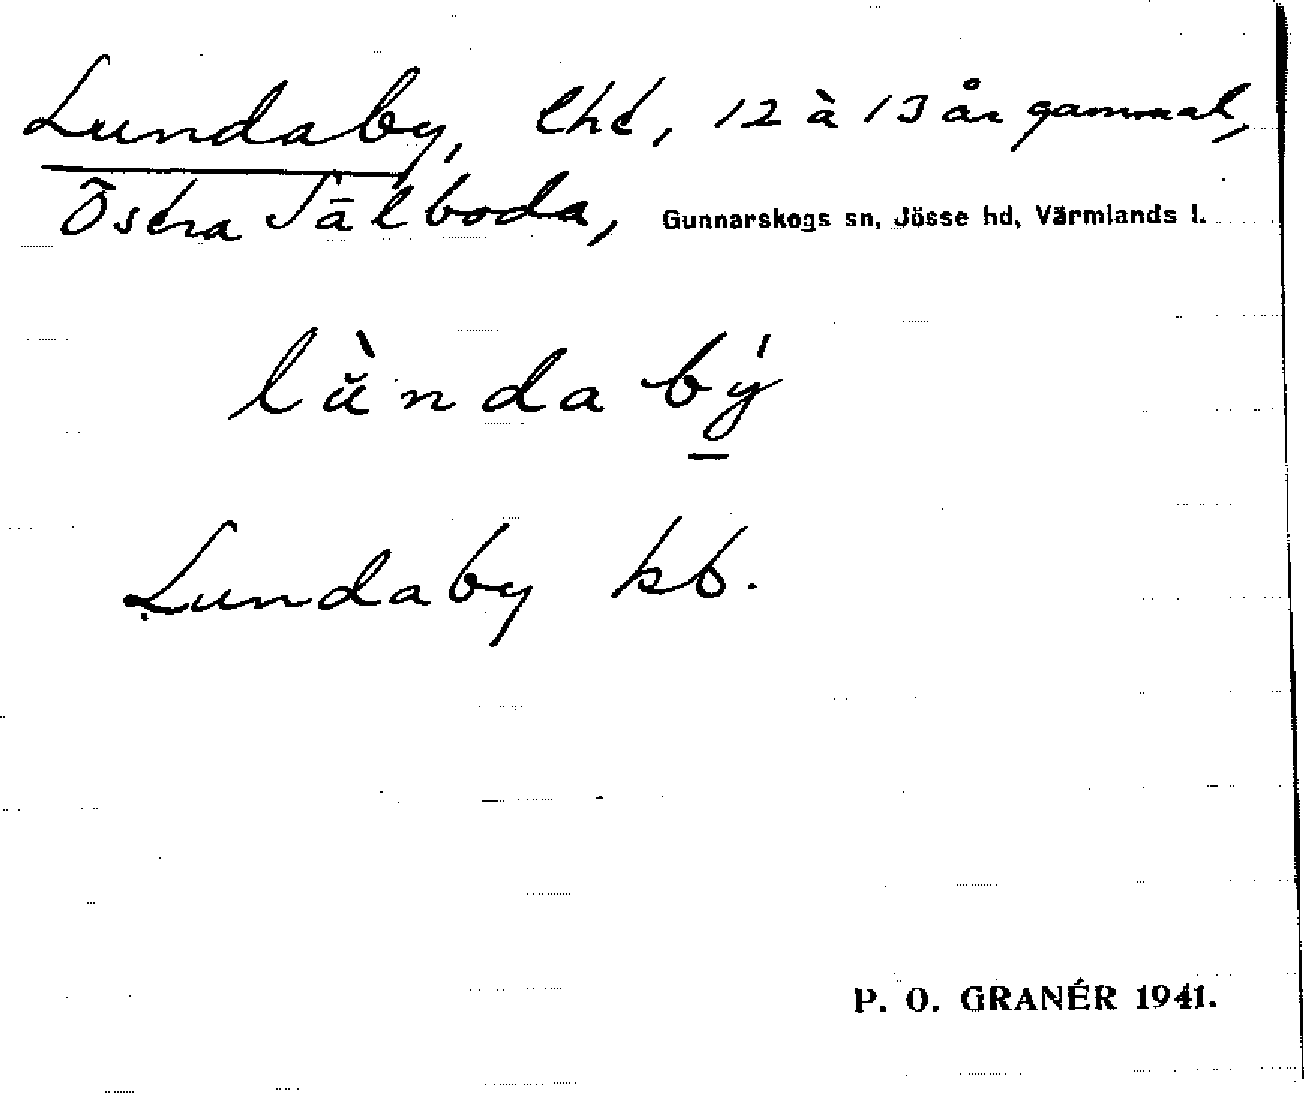 Lundaby, lht, 12 à 13 år gammal,
Östra Tälboda, Gunnarskogs sn, Jösse hd, Värmlands l.
lǜnda bý
Lundaby kb.
P. O. GRANÉR 1941.